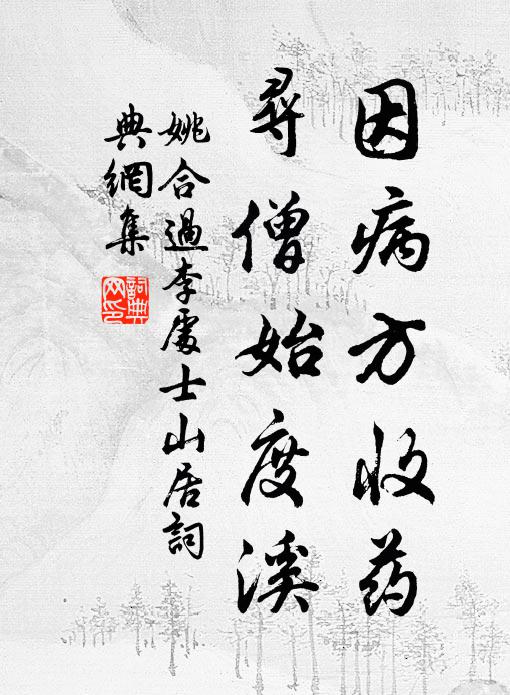 因病方收药
尋僧始度溪
姚合過李處士山居詞
典網集
詞典網印